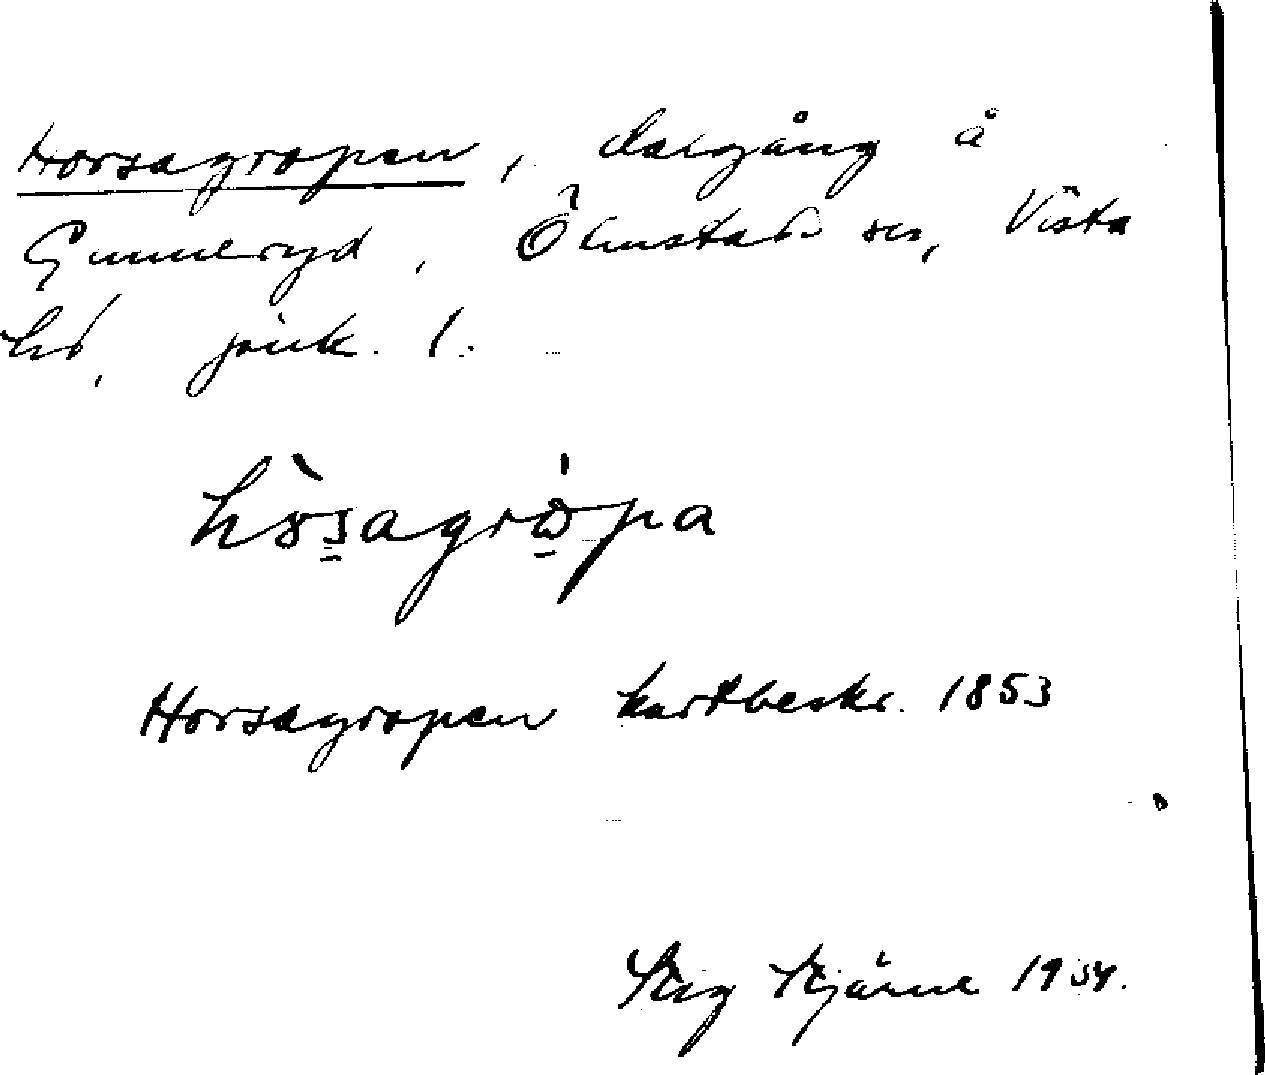 Horsagropen, dalgång å
Gunneryd, Ölmstads sn, Vista
hd, jönk. l.
Horsagropen kartbeskr. 1853
Stig Stjärne 1934.